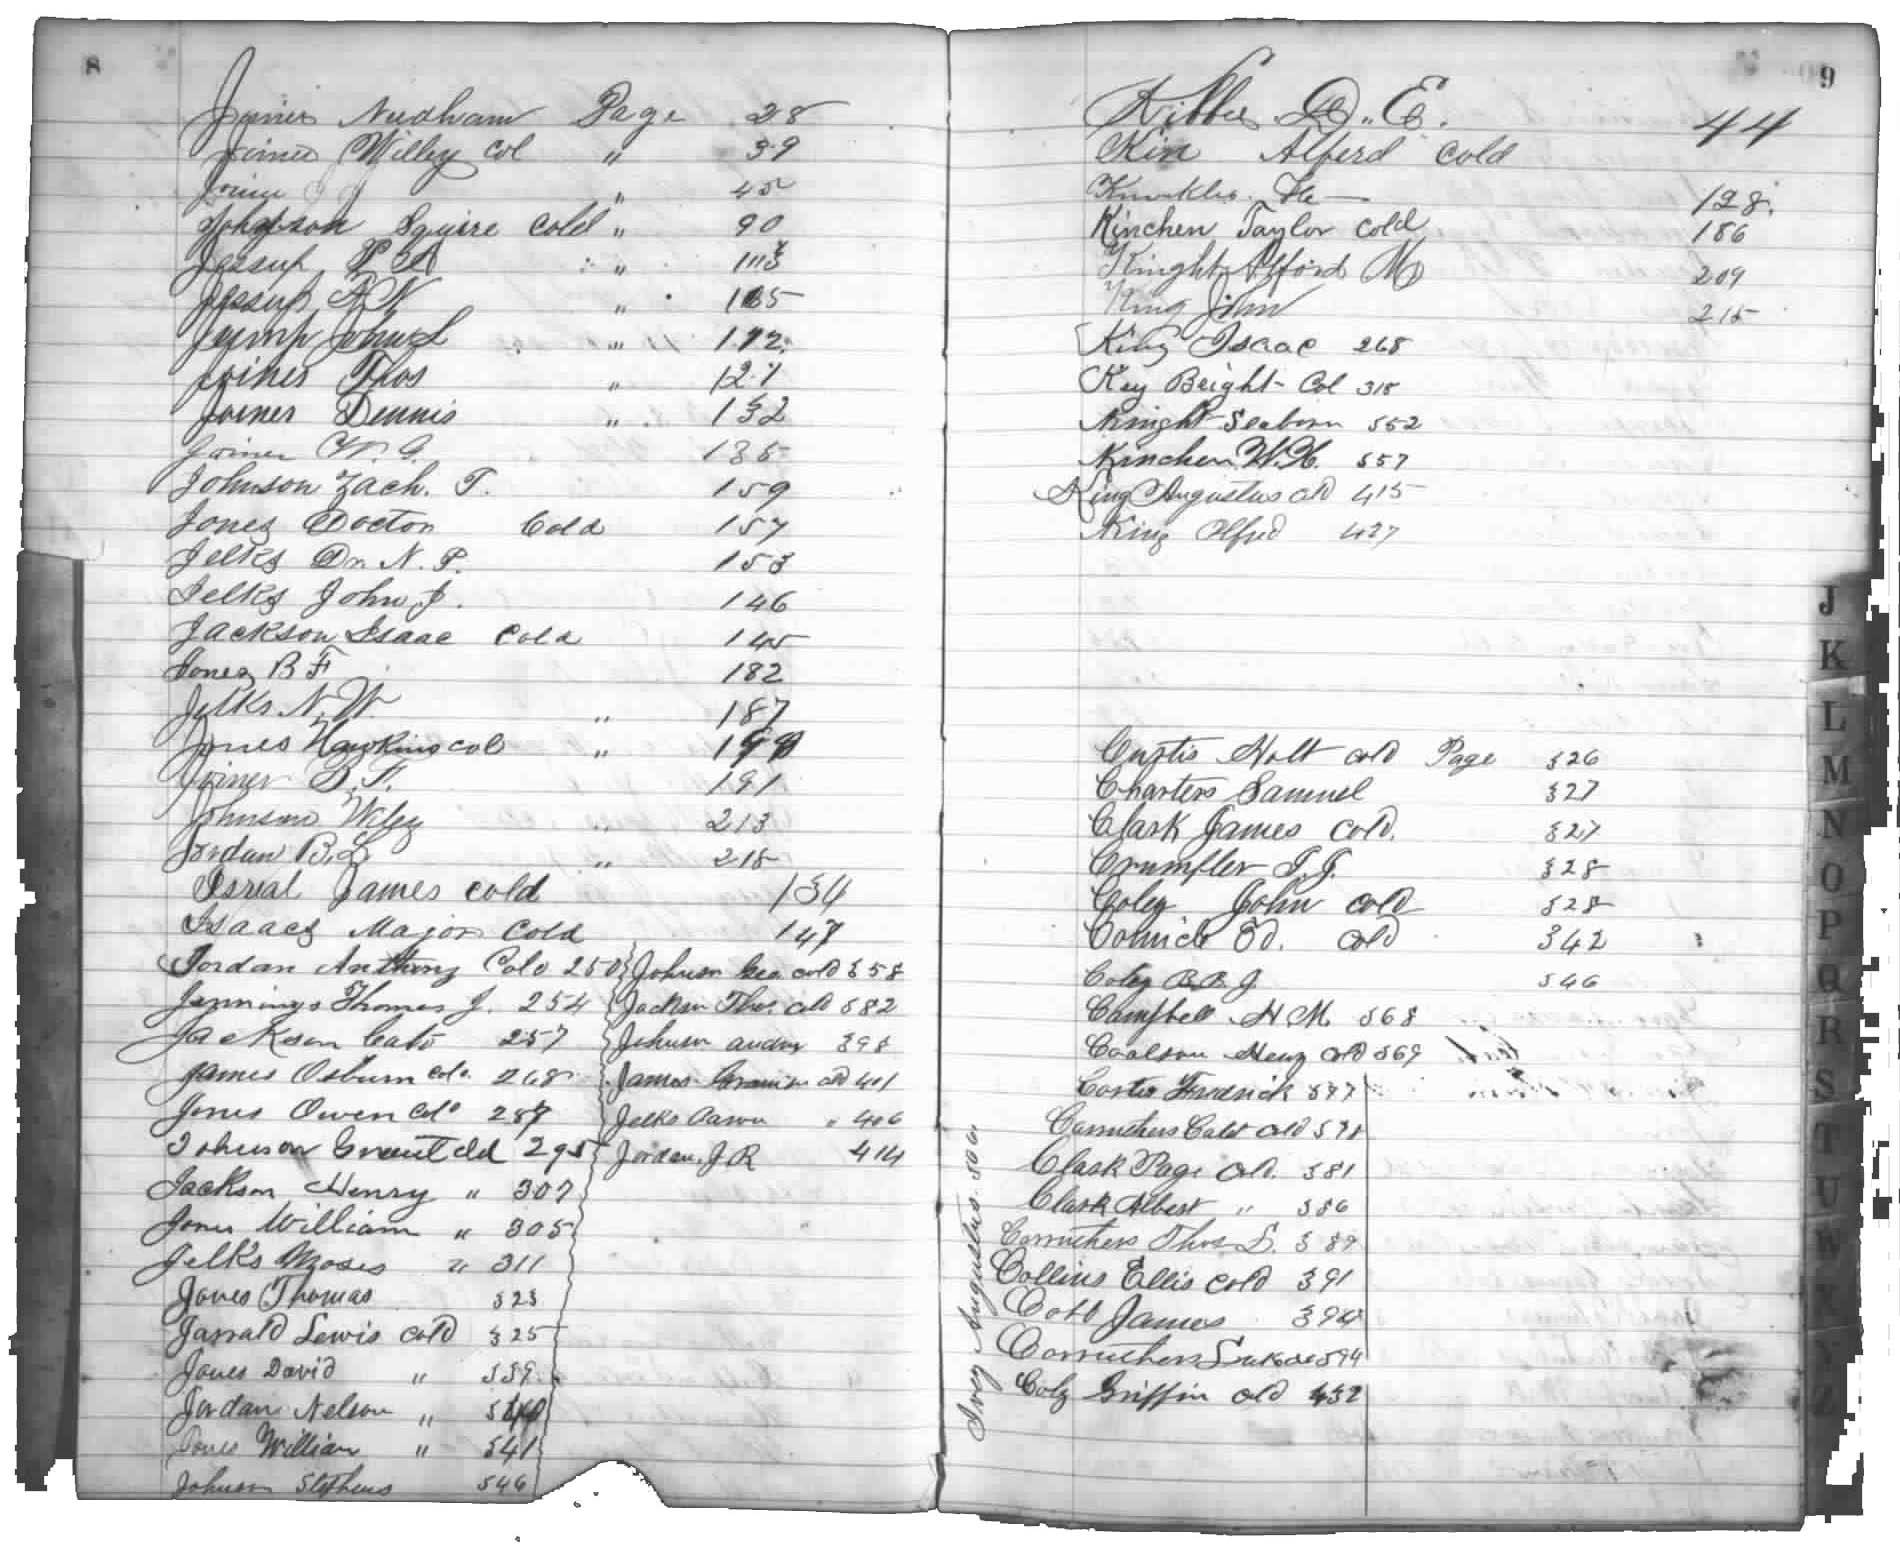 8
Joiner Needham Page 28
Joiner Willey Col " 39
Joiner J J " 45
Johnson Squire Cold " 90
Jessup P A "
Jessup A N "
Jump John L " 112
Joiner Thos " 121
Joiner Dennis " 132
Joiner W. G. 135
Johnson Zach. T. 159
Jones Docton Cold 157
Jelks Dr. N. P. 153
Jelks John J. 146
Jackson Isaac Cold 145
Jones B F 182
Jelks N. W. " 187
Jones Hawkins col "
Joiner B. F. 191
Johnson Wiley " 213
Jordan B. L. " 218
Isreal James cold 134
Isaacs Major Cold 147
Jordan Anthony Cold 250 Johnson Geo cold 358
Jennings Thomas J. 254 Jackson Thos. Cld 382
Jackson Cato 257 Johnson andrw 398
James Osburn col. 268 James cld 401
Jones Owen Col 287 Jelks Aaron " 406
Johnson Grant Cld 295 Jordan. J R 414
Jackson Henry " 307
Jones William " 305
Jelks Moses " 311
Jones Thomas 323
Jarrald Lewis cold 325
Jones David " 339
Jordan Nelson " 340
Jones William " 341
Johnson Stephens 346
9
Kibbee D. E. 44
Kin Alferd Cold
128.
Kinchen Taylor cold 186
Knight Alford M 209
King John 215
King Isaac 268
Key Bright Col 318
Knight Seaborn 352
Kinchen W. H. 357
King Augustus cld 415
King Alfred 427
Curtis Holt cold Page 326
Charters Samuel 327
Clark James cold. 327
Crumpler T. J. 328
Coley John cold 328
Ed. cold 342
Coley B. B. J. 346
Campbell H. M. 368
Coalson Henry cold 369
Frederick 377
Carruthers Cald cld 378
Clark Page cld. 381
Clark Albert " 386
Carruthers Thos L. 389
Collins Ellis cold 391
Cobb James 394
Carruthers Luke cld 394
Coley Griffin cld 432
Ivey Augustus 306
J
K
L
M
N
O
P
Q
R
S
T
U
W
Y
Z